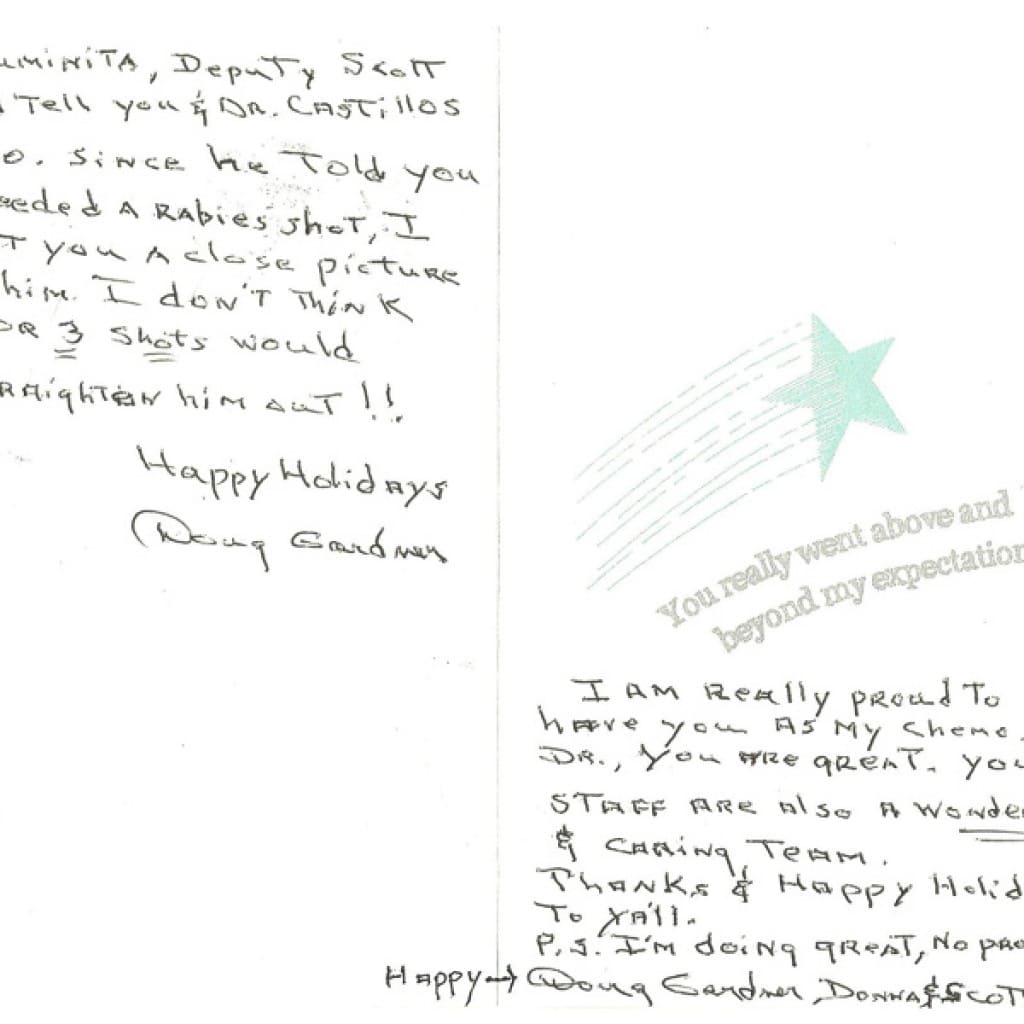 uminiTA, Deputy Scott
Tell you & DR. CASTillos
o. Since he Told you
eeded A RAbies shot, I
T you A close picture
him. I don't Think
OR 3 Shots would
RAighTen him out !!
Happy Holidays
Doug Gardner
You really went above and
beyond my expectation
I AM Really proud To
have you AS My Chemo.
DR., You are great. You
STAFF ARE Also A Wonder
& CARing TEAM.
Thanks & Happy Holid
To YA'll.
P.S. I'm doing great, No pro
Happy → Doug Gardner, Donna & Scott